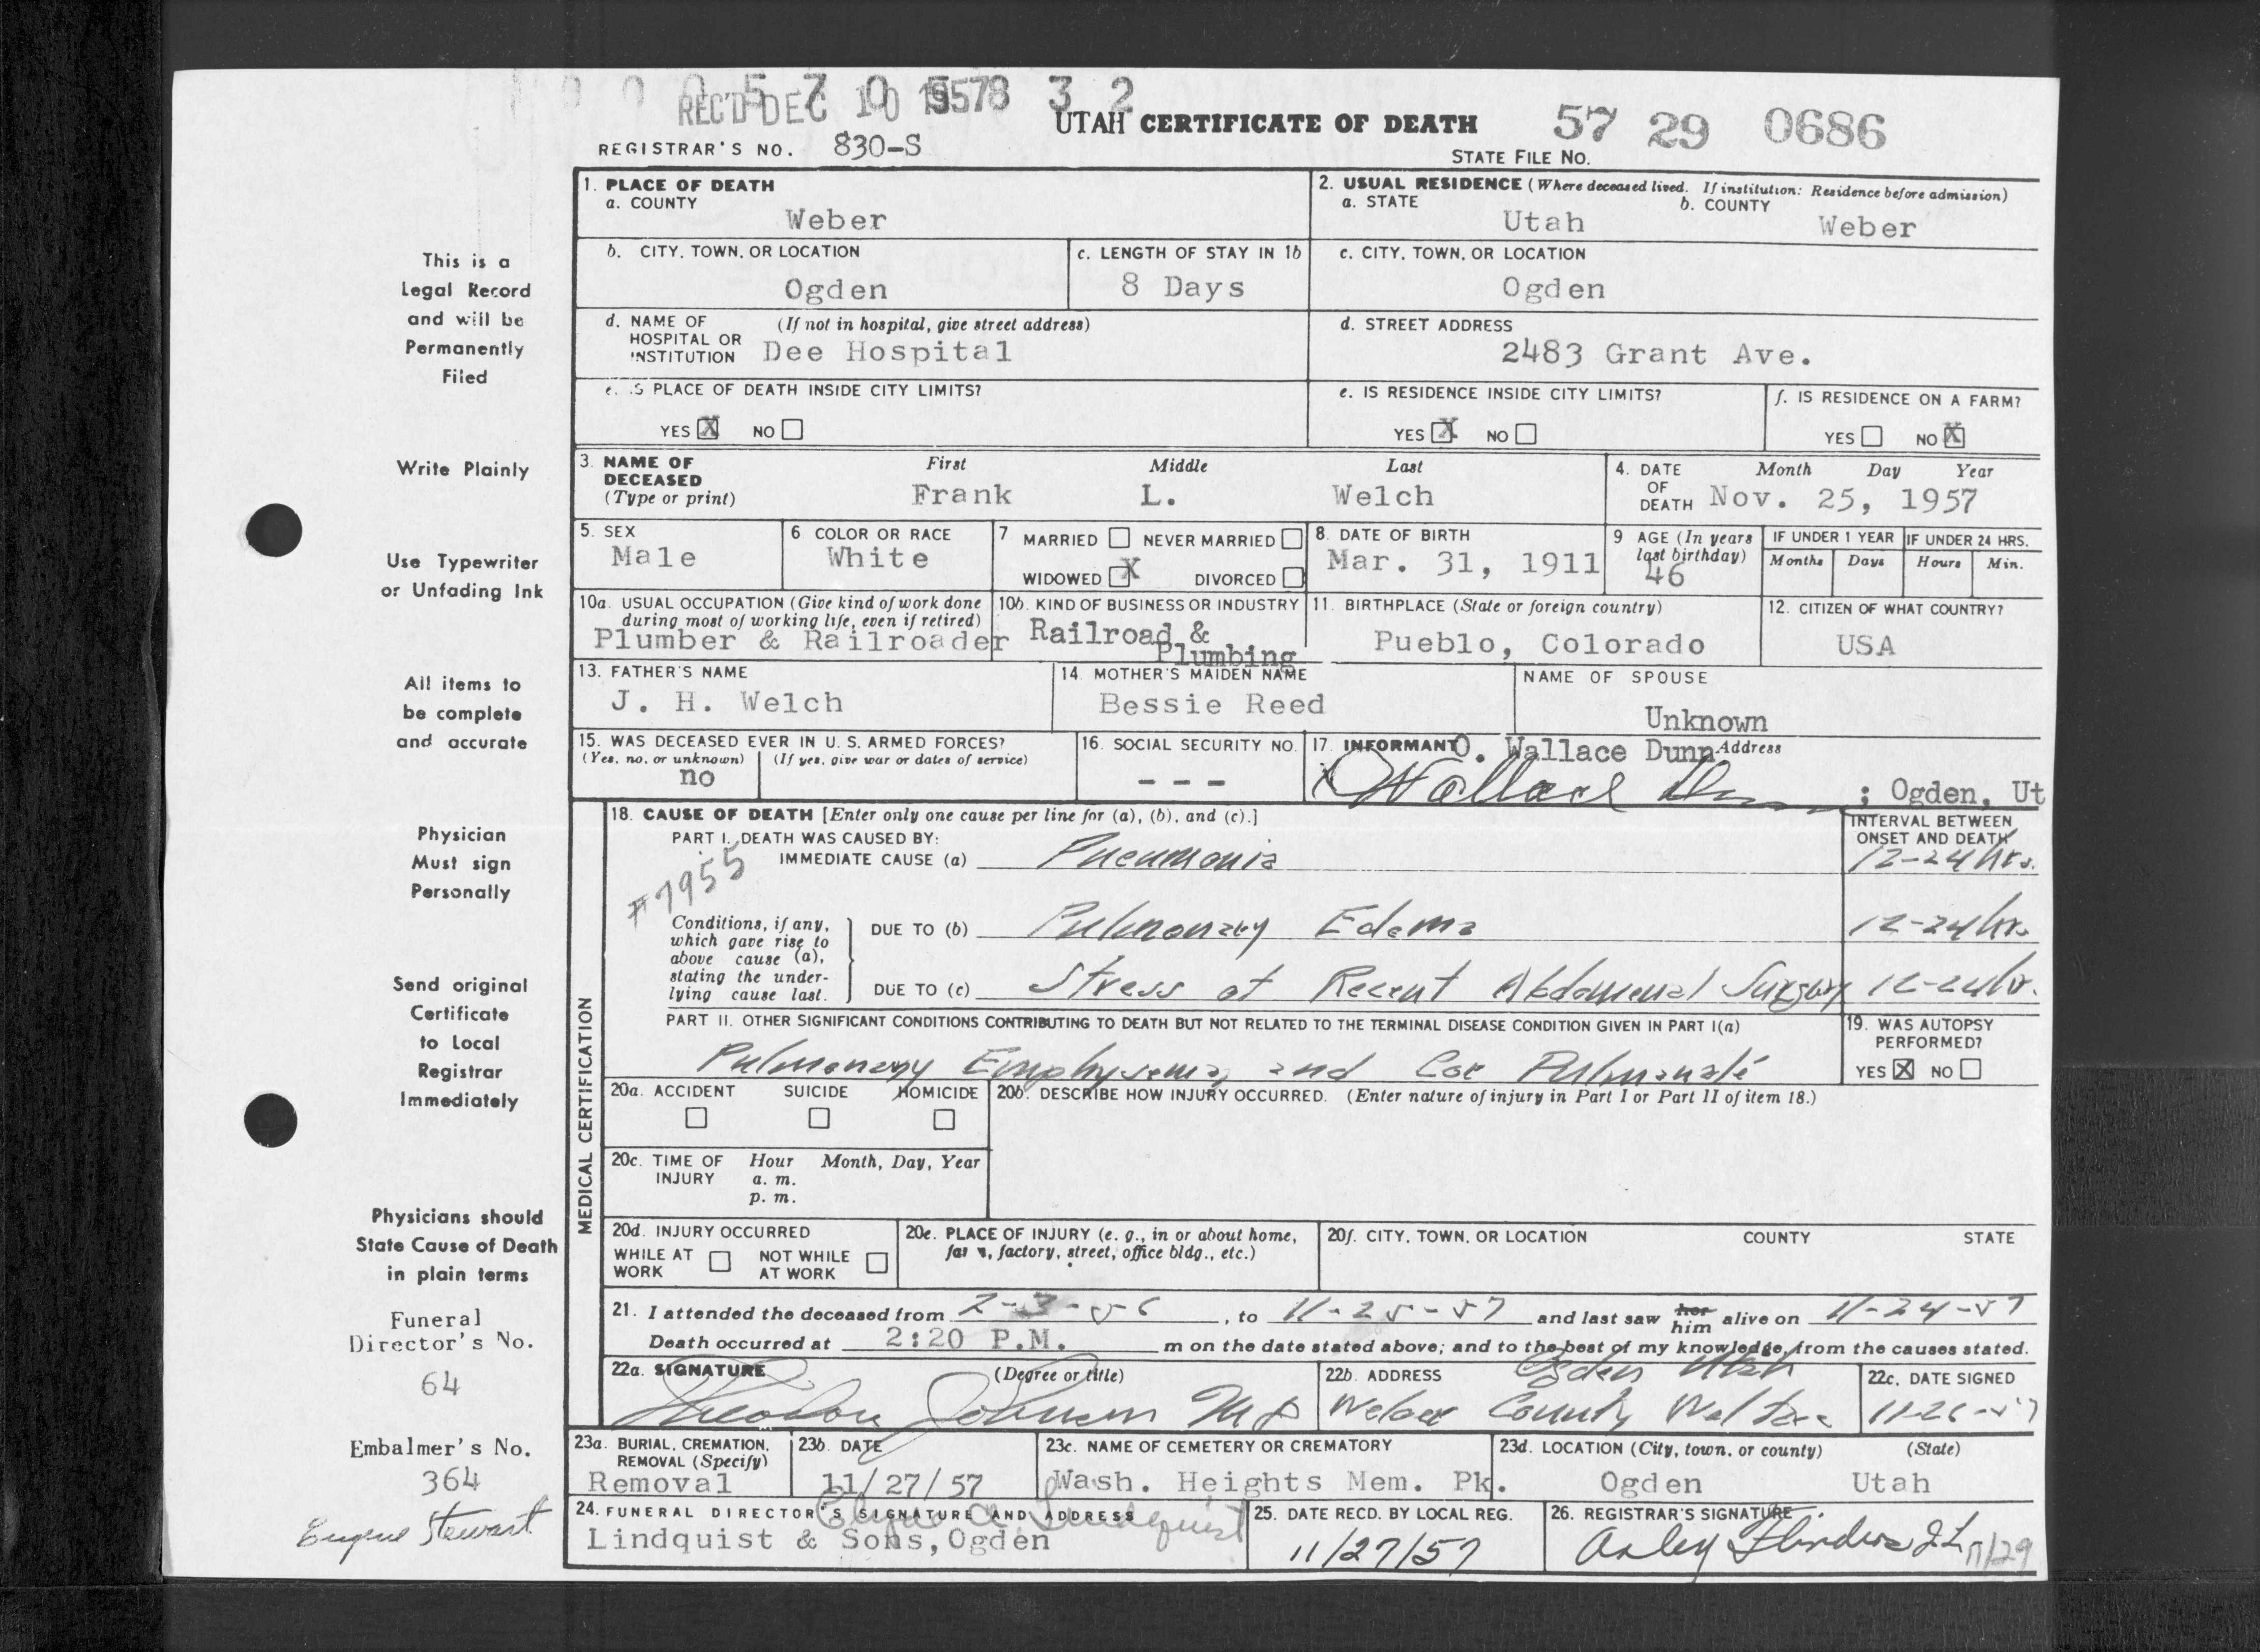 REC'D DEC 10 1957
UTAH CERTIFICATE OF DEATH
57 29 0686
REGISTRAR'S NO. 830-S
STATE FILE NO.
This is a
Legal Record
and will be
Permanently
Filed
Write Plainly
Use Typewriter
or Unfading Ink
All items to
be complete
and accurate
Physician
Must sign
Personally
Send original
Certificate
to Local
Registrar
Immediately
Physicians should
State Cause of Death
in plain terms
Funeral
Director's No.
64
Embalmer's No.
364
Eugene Stewart
1. PLACE OF DEATH
a. COUNTY
Weber
2. USUAL RESIDENCE (Where deceased lived. If institution: Residence before admission)
a. STATE
Utah
b. COUNTY
Weber
b. CITY, TOWN, OR LOCATION
Ogden
c. LENGTH OF STAY IN 1b
8 Days
c. CITY, TOWN, OR LOCATION
Ogden
d. NAME OF (If not in hospital, give street address)
HOSPITAL OR
INSTITUTION Dee Hospital
d. STREET ADDRESS
2483 Grant Ave.
e. IS PLACE OF DEATH INSIDE CITY LIMITS?
YES X NO
e. IS RESIDENCE INSIDE CITY LIMITS?
YES X NO
f. IS RESIDENCE ON A FARM?
YES NO X
3. NAME OF
DECEASED
(Type or print)
First Middle Last
Frank L. Welch
4. DATE
OF
DEATH
Month Day Year
Nov. 25, 1957
5. SEX
Male
6 COLOR OR RACE
White
7 MARRIED NEVER MARRIED
WIDOWED X DIVORCED
8. DATE OF BIRTH
Mar. 31, 1911
9 AGE (In years
last birthday)
46
IF UNDER 1 YEAR
Months Days
IF UNDER 24 HRS.
Hours Min.
10a. USUAL OCCUPATION (Give kind of work done
during most of working life, even if retired)
Plumber & Railroader
10b. KIND OF BUSINESS OR INDUSTRY
Railroad &
Plumbing
11. BIRTHPLACE (State or foreign country)
Pueblo, Colorado
12. CITIZEN OF WHAT COUNTRY?
USA
13. FATHER'S NAME
J. H. Welch
14. MOTHER'S MAIDEN NAME
Bessie Reed
NAME OF SPOUSE
Unknown
15. WAS DECEASED EVER IN U. S. ARMED FORCES?
(Yes, no, or unknown) (If yes, give war or dates of service)
no
16. SOCIAL SECURITY NO.
- - -
17. INFORMANT O. Wallace Dunn Address
O Wallace Dunn ; Ogden, Ut
18. CAUSE OF DEATH [Enter only one cause per line for (a), (b), and (c).]
INTERVAL BETWEEN
ONSET AND DEATH
PART I. DEATH WAS CAUSED BY:
IMMEDIATE CAUSE (a) Pneumonia 12-24 hrs.
#7955
Conditions, if any,
which gave rise to
above cause (a),
stating the under-
lying cause last.
DUE TO (b) Pulmonary Edema 12-24 hr.
DUE TO (c) Stress of Recent Abdomenal Surgery 12-24 hr.
PART II. OTHER SIGNIFICANT CONDITIONS CONTRIBUTING TO DEATH BUT NOT RELATED TO THE TERMINAL DISEASE CONDITION GIVEN IN PART I(a)
Pulmonary Emphysema, and Cor Pulmonalé
19. WAS AUTOPSY
PERFORMED?
YES X NO
MEDICAL CERTIFICATION
20a. ACCIDENT SUICIDE HOMICIDE
20b. DESCRIBE HOW INJURY OCCURRED. (Enter nature of injury in Part I or Part II of item 18.)
20c. TIME OF Hour Month, Day, Year
INJURY a. m.
p. m.
20d. INJURY OCCURRED
WHILE AT NOT WHILE
WORK AT WORK
20e. PLACE OF INJURY (e. g., in or about home,
farm, factory, street, office bldg., etc.)
20f. CITY, TOWN, OR LOCATION COUNTY STATE
21. I attended the deceased from 2-3-56, to 11-25-57 and last saw her him alive on 11-24-57
Death occurred at 2:20 P.M. m on the date stated above; and to the best of my knowledge, from the causes stated.
22a. SIGNATURE (Degree or title)
Theodore Johnson MD
22b. ADDRESS Ogden Utah
Weber County Welfare
22c. DATE SIGNED
11-26-57
23a. BURIAL, CREMATION,
REMOVAL (Specify)
Removal
23b. DATE
11/27/57
23c. NAME OF CEMETERY OR CREMATORY
Wash. Heights Mem. Pk.
23d. LOCATION (City, town, or county) (State)
Ogden Utah
24. FUNERAL DIRECTOR'S SIGNATURE AND ADDRESS
Lindquist & Sons, Ogden
25. DATE RECD. BY LOCAL REG.
11/27/57
26. REGISTRAR'S SIGNATURE
11/29